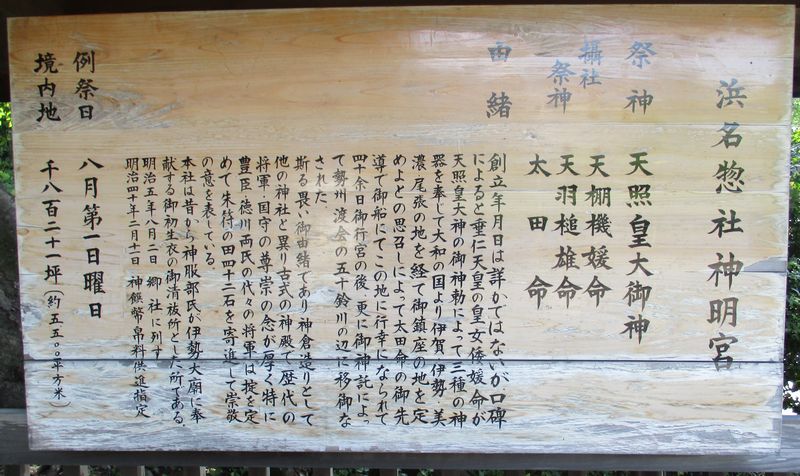 浜名惣社神明宮
祭神 天照皇大御神
攝社 天棚機媛命
祭神 天羽槌雄命
太田命
由緒
創立年月日は詳かではないが口碑
によると垂仁天皇の皇女倭媛命が
天照皇大神の御神勅によって三種の神
器を奉じて大和の国より伊賀 伊勢 美
濃 尾張の地を経て御鎮座の地を定
めよとの思召しによって太田命の御先
導で御船にてこの地に行幸になられて
四十余日御行宮の後、更に御神託によっ
て勢州 渡会の五十鈴川の辺に移御な
された
斯る畏い御由緒であり神倉造りとして
他の神社と異り古式の神殿で歴代の
将軍・国守の尊崇の念が厚く特に
豊臣 徳川両氏の代々の将軍は掟を定
めて朱符の田四十二石を寄進して崇敬
の意を表している。
本社は昔から神服部氏が伊勢大廟に奉
献する御初生衣の御清祓所とした所である。
明治五年八月二日 郷社に列す
明治四十年二月十一日 神饌幣帛料供進指定
例祭日 八月第一日曜日
境内地 千八百二十一坪(約五五〇〇平方米)